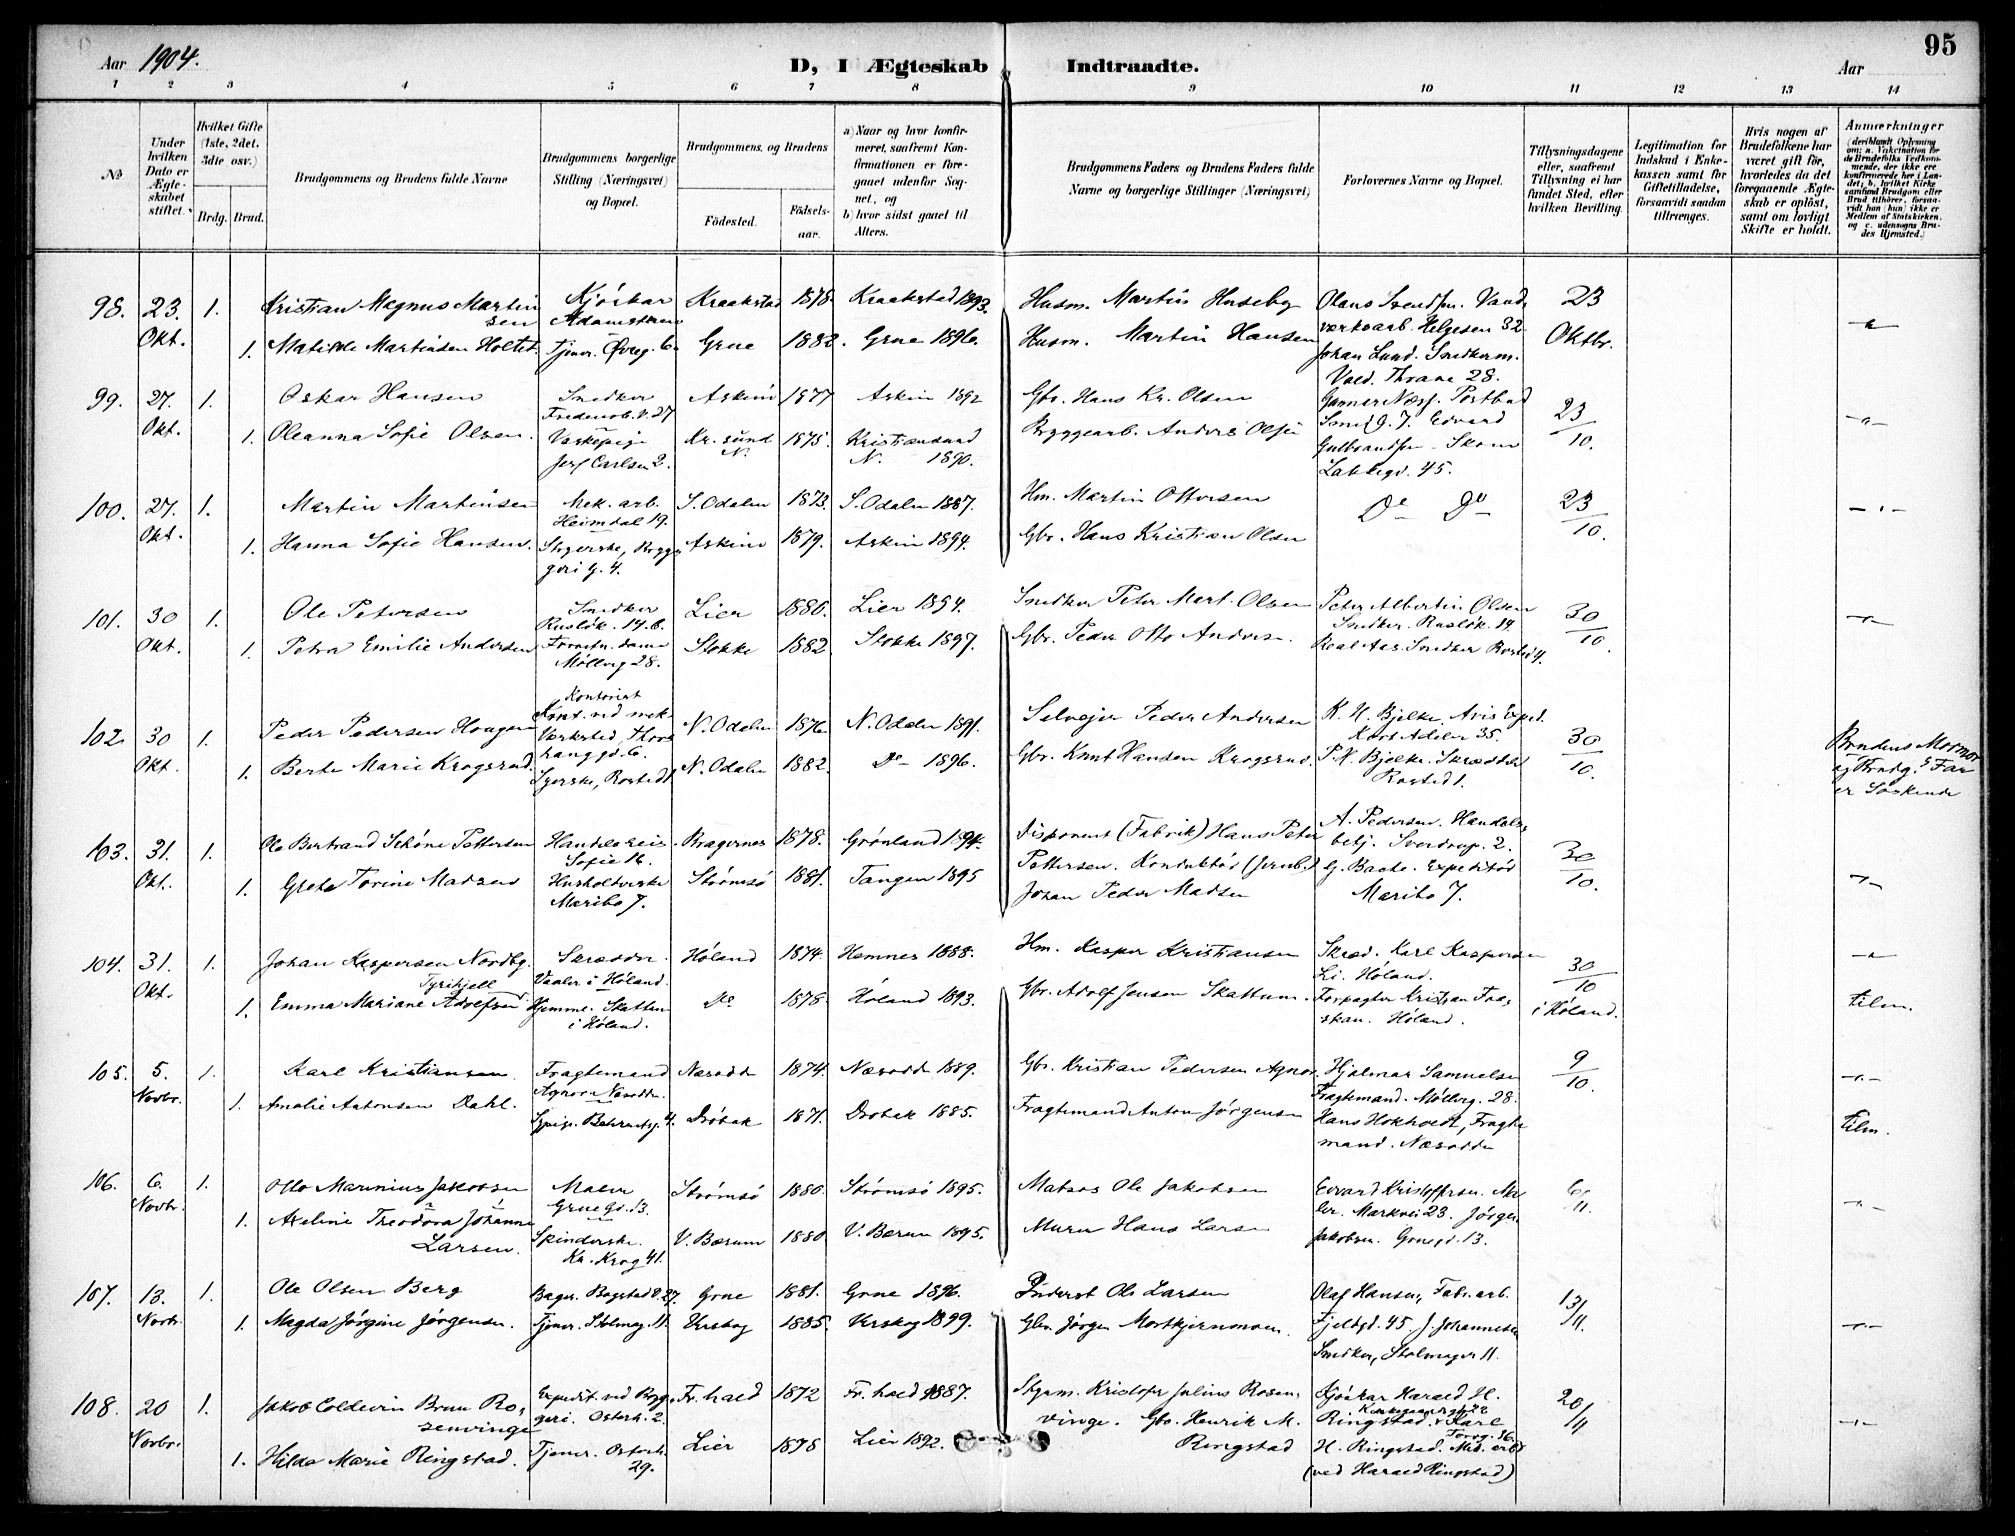 95
Aar 1904.
D, I Ægteskab Indtraadte.
Aar
1 2 3 4 5 6 7 8 9 10 11 12 13 14
No
Under hvilken Dato er Ægteskabet stiftet.
Hvilket Gifte (1ste, 2det, 3die osv.)
Brdg. Brud.
Brudgommens og Brudens fulde Navne
Brudgommens borgerlige Stilling (Næringsvei) og Bopæl.
Brudgommens og Brudens
Fødested.
Fødselsaar.
a) Naar og hvor konfirmeret, saafremt Konfirmationen er foregaaet udenfor Sognet, og
b) hvor sidst gaaet til Alters.
Brudgommens Faders og Brudens Faders fulde Navne og borgerlige Stillinger (Næringsvei)
Forlovernes Navne og Bopæl.
Tillysningsdagene eller, saafremt Tillysning ei har fundet Sted, efter hvilken Bevilling.
Legitimation for Indskud i Enkekassen samt for Giftetilladelse, forsaavidt saadan tiltrænges.
Hvis nogen af Brudefolkene har været gift før, hvorledes da det foregaaende Ægteskab er opløst, samt om lovligt Skifte er holdt.
Anmærkninger
98. 23. 1. Kristian Magnus Martinsen Kjøskar Kraakstad 1878. Kraakstad 1893. Husm. Martin Huseby Olaus Svendsen. Vandværksarb. Helgesen 32. 23
Okt. 1. Matilde Martinsen Holtet. Tjener. Øvreg. 6 Grue 1882. Grue 1896. Husm. Martin Hansen Johan Lund. Snedkerm. Vald. Thrane 28. Oktbr.
99. 27. 1. Oskar Hansen Snedker Fredensb.V. 27 Askim 1877 Askim 1892 Gbr. Hans Kr. Olsen 23/10.
Okt. 1. Oleanna Sofie Olsen. Vaskepige Kr.sund N. 1875. Kristiansund N. 1890. Bryggearb. Anders Olsen Edvard Gulbrandsen. Skom 45.
100. 27. 1. Martin Martinsen Mek. arb. Heimdal 19. S. Odalen 1873. S. Odalen 1887. Hm. Martin Ottersen Do Do 23/10.
Okt. 1. Hanna Sofie Hansen. Bryggerig. 4. Askim 1879. Askim 1894. Gbr. Hans Kristian Olsen
101. 30 1. Ole Petersen Snedker Rusløk. 14.b. Lier 1880. Lier 1894. Snedker Peter Mart. Olsen Peter Albertin Olsen Snedker. Rusløk. 14. 30/10.
Okt. 1. Petra Emilie Andersen Forretn. dame Møllerg 28. Stokke 1882. Stokke 1897. Gbr. Peder Otto Anders. Snedker
102. 30 1. Peder Pedersen Haugen Kontorist N. Odalen 1876. N. Odalen 1891. Selveier Peder Andersen K. H. Bjelke. Avis Exped. Kort Adeler 35. 30/10.
Okt. 1. Berte Marie Krogsrud. Syerske, Rosted 1. N. Odalen 1882. Do 1896. Gbr. Knut Hansen Krogsrud. P. N. Bjelke. Skrædder Rosted 1.
Brudens Mormor og Brudg.s Far er Søskende
103. 31. 1. Ole Bertrand Schöne Pettersen Handelsreis. Sofie 16. Bragernes 1878. Grønland 1894. Disponent (Fabrik) Hans Peter Pettersen. A. Pedersen. Handelsbetj. Sverdrup. 2. 30/10.
Okt. 1. Grete Torine Madsen Husholderske Maribo 7. Strømsø 1881. Tangen 1895 Konduktør (Jernb.) Johan Peder Madsen G. Bache. Expeditør Maribo 7.
104. 31. 1. Johan Kaspersen Nordby. Skrædder. Vaaler i Høland. Høland 1874. Hemnes 1888. Hm. Kasper Kristiansen Skræd. Karl Kaspersen Li. Høland. 30/10
Okt. 1. Emma Mariane Adolfsen Tyrihjell Hjemme. Skattum i Høland. Do 1878. Høland 1893. Gbr. Adolf Jensen Skattum. Forpagter Kristian Høland. i Høland. tilm.
105. 5. 1. Karl Kristiansen. Fragtemand Agnor Næsodden. Næsodd 1874. Næsodd 1889. Gbr. Kristian Pedersen Agnor. Hjalmar Samuelsen Fragtemand. Møllerg. 28. 9/10.
Novbr. 1. Amalie Antonsen Dahl. Drøbak 1871. Drøbak 1885. Fragtemand Anton Jørgensen Hans Hokholdt, Fragtemand. Næsodden tilm.
106. 6. 1. Otto Marinius Jakobsen Maler Grue gd. 13. Strømsø 1880. Strømsø 1895. Matros Ole Jakobsen Edvard Kristoffersen. Maler. Markvei 23. 6/11.
Novbr. 1. Axeline Theodora Johanne Larsen. Spinderske. Kr. Krog 41. V. Bærum 1880 V. Bærum 1895. Murer Hans Larsen Jørgen Jakobsen. Gruegd. 13.
107. 13. 1. Ole Olsen Berg Bager. Bogstad v. 27. Grue 1881. Grue 1896. Inderst Ole Larsen Olaf Hansen, Fabr. arb. Fjeldgd. 45. 13/11.
Novbr. 1. Magda Jørgine Jørgensen. Tjener. Stolmag. 11. Urskog 1885. Urskog 1899. Gbr. Jørgen Mortkjernmoen. J. Johannesen Snedker, Stolmager 11.
108. 20 1. Jakob Coldevin Bruun Rosenvinge Expedit. ved Bryggeri. Osterh. 2. Fr.hald 1872 Fr. hald 1887. Styrm. Kristofer Julius Rosenvinge. Kjøskar Harald H. Ringstad. 20/11
Novbr. 1. Hilda Marie Ringstad. Tjener. Osterh. 29. Lier 1878 Lier 1892. Gbr. Henrik M. Ringstad Karl H. Ringstad. (ved Harald Ringstad)